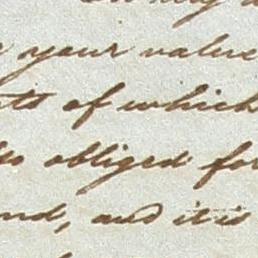 your value
of which
obliged for
and, and it is